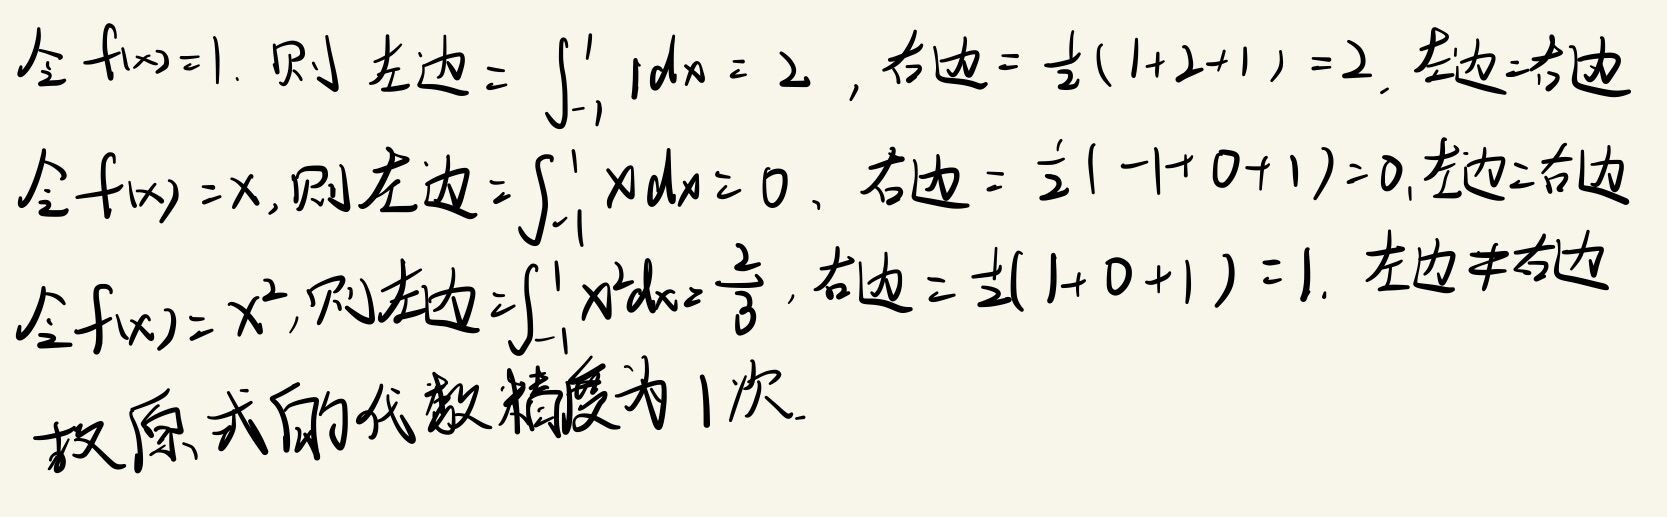 令f(x)=1. 则 左边 = ∫₋₁¹ 1dx = 2 , 右边 = ½(1+2+1) = 2. 左边=右边
令f(x)=x, 则左边=∫₋₁¹ xdx=0、右边 = ½(-1+0+1)=0, 左边=右边
令f(x)=x², 则左边=∫₋₁¹ x²dx=2/3, 右边=½(1+0+1)=1. 左边≠右边
故原式的代数精度为1次.